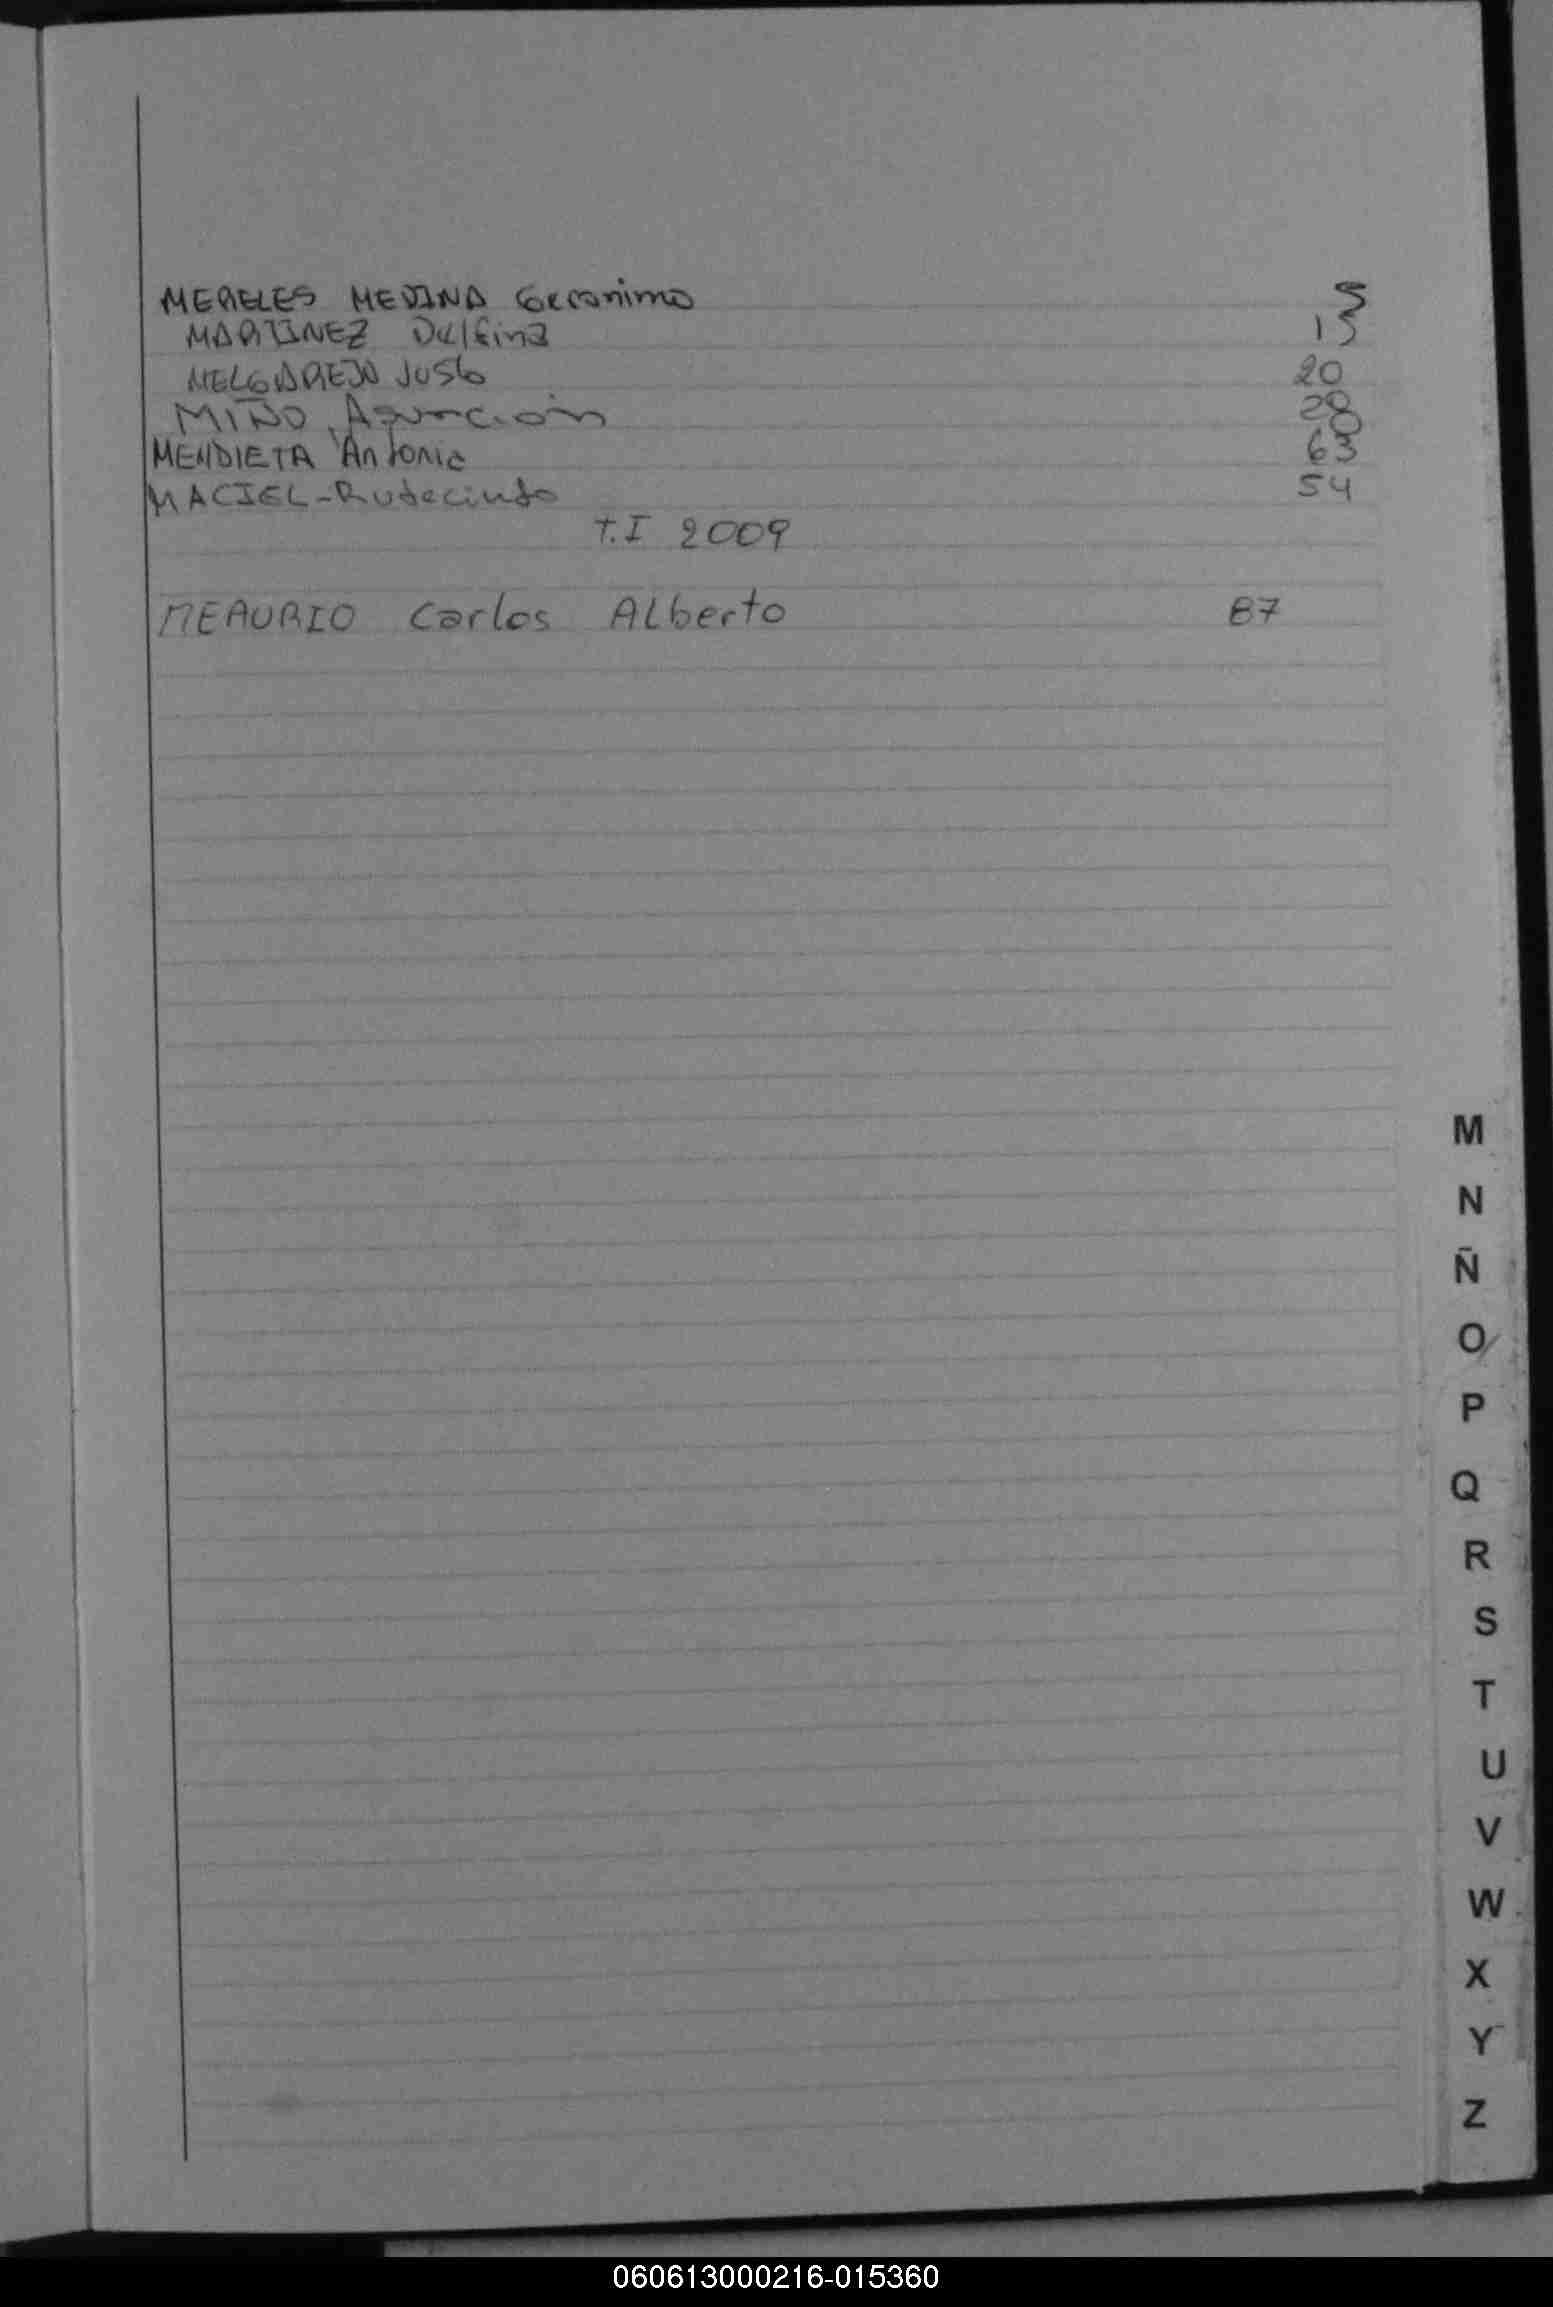 MERELES MEDINA Geronimo 5
MARTINEZ Delfina 15
MELGAREJO Justo 20
MIÑO Asunción 28
MENDIETA Antonio 63
MACIEL - Rudecindo 54
T.I 2009
MEAURIO Carlos Alberto 87
M
N
Ñ
O
P
Q
R
S
T
U
V
W
X
Y
Z
060613000216-015360